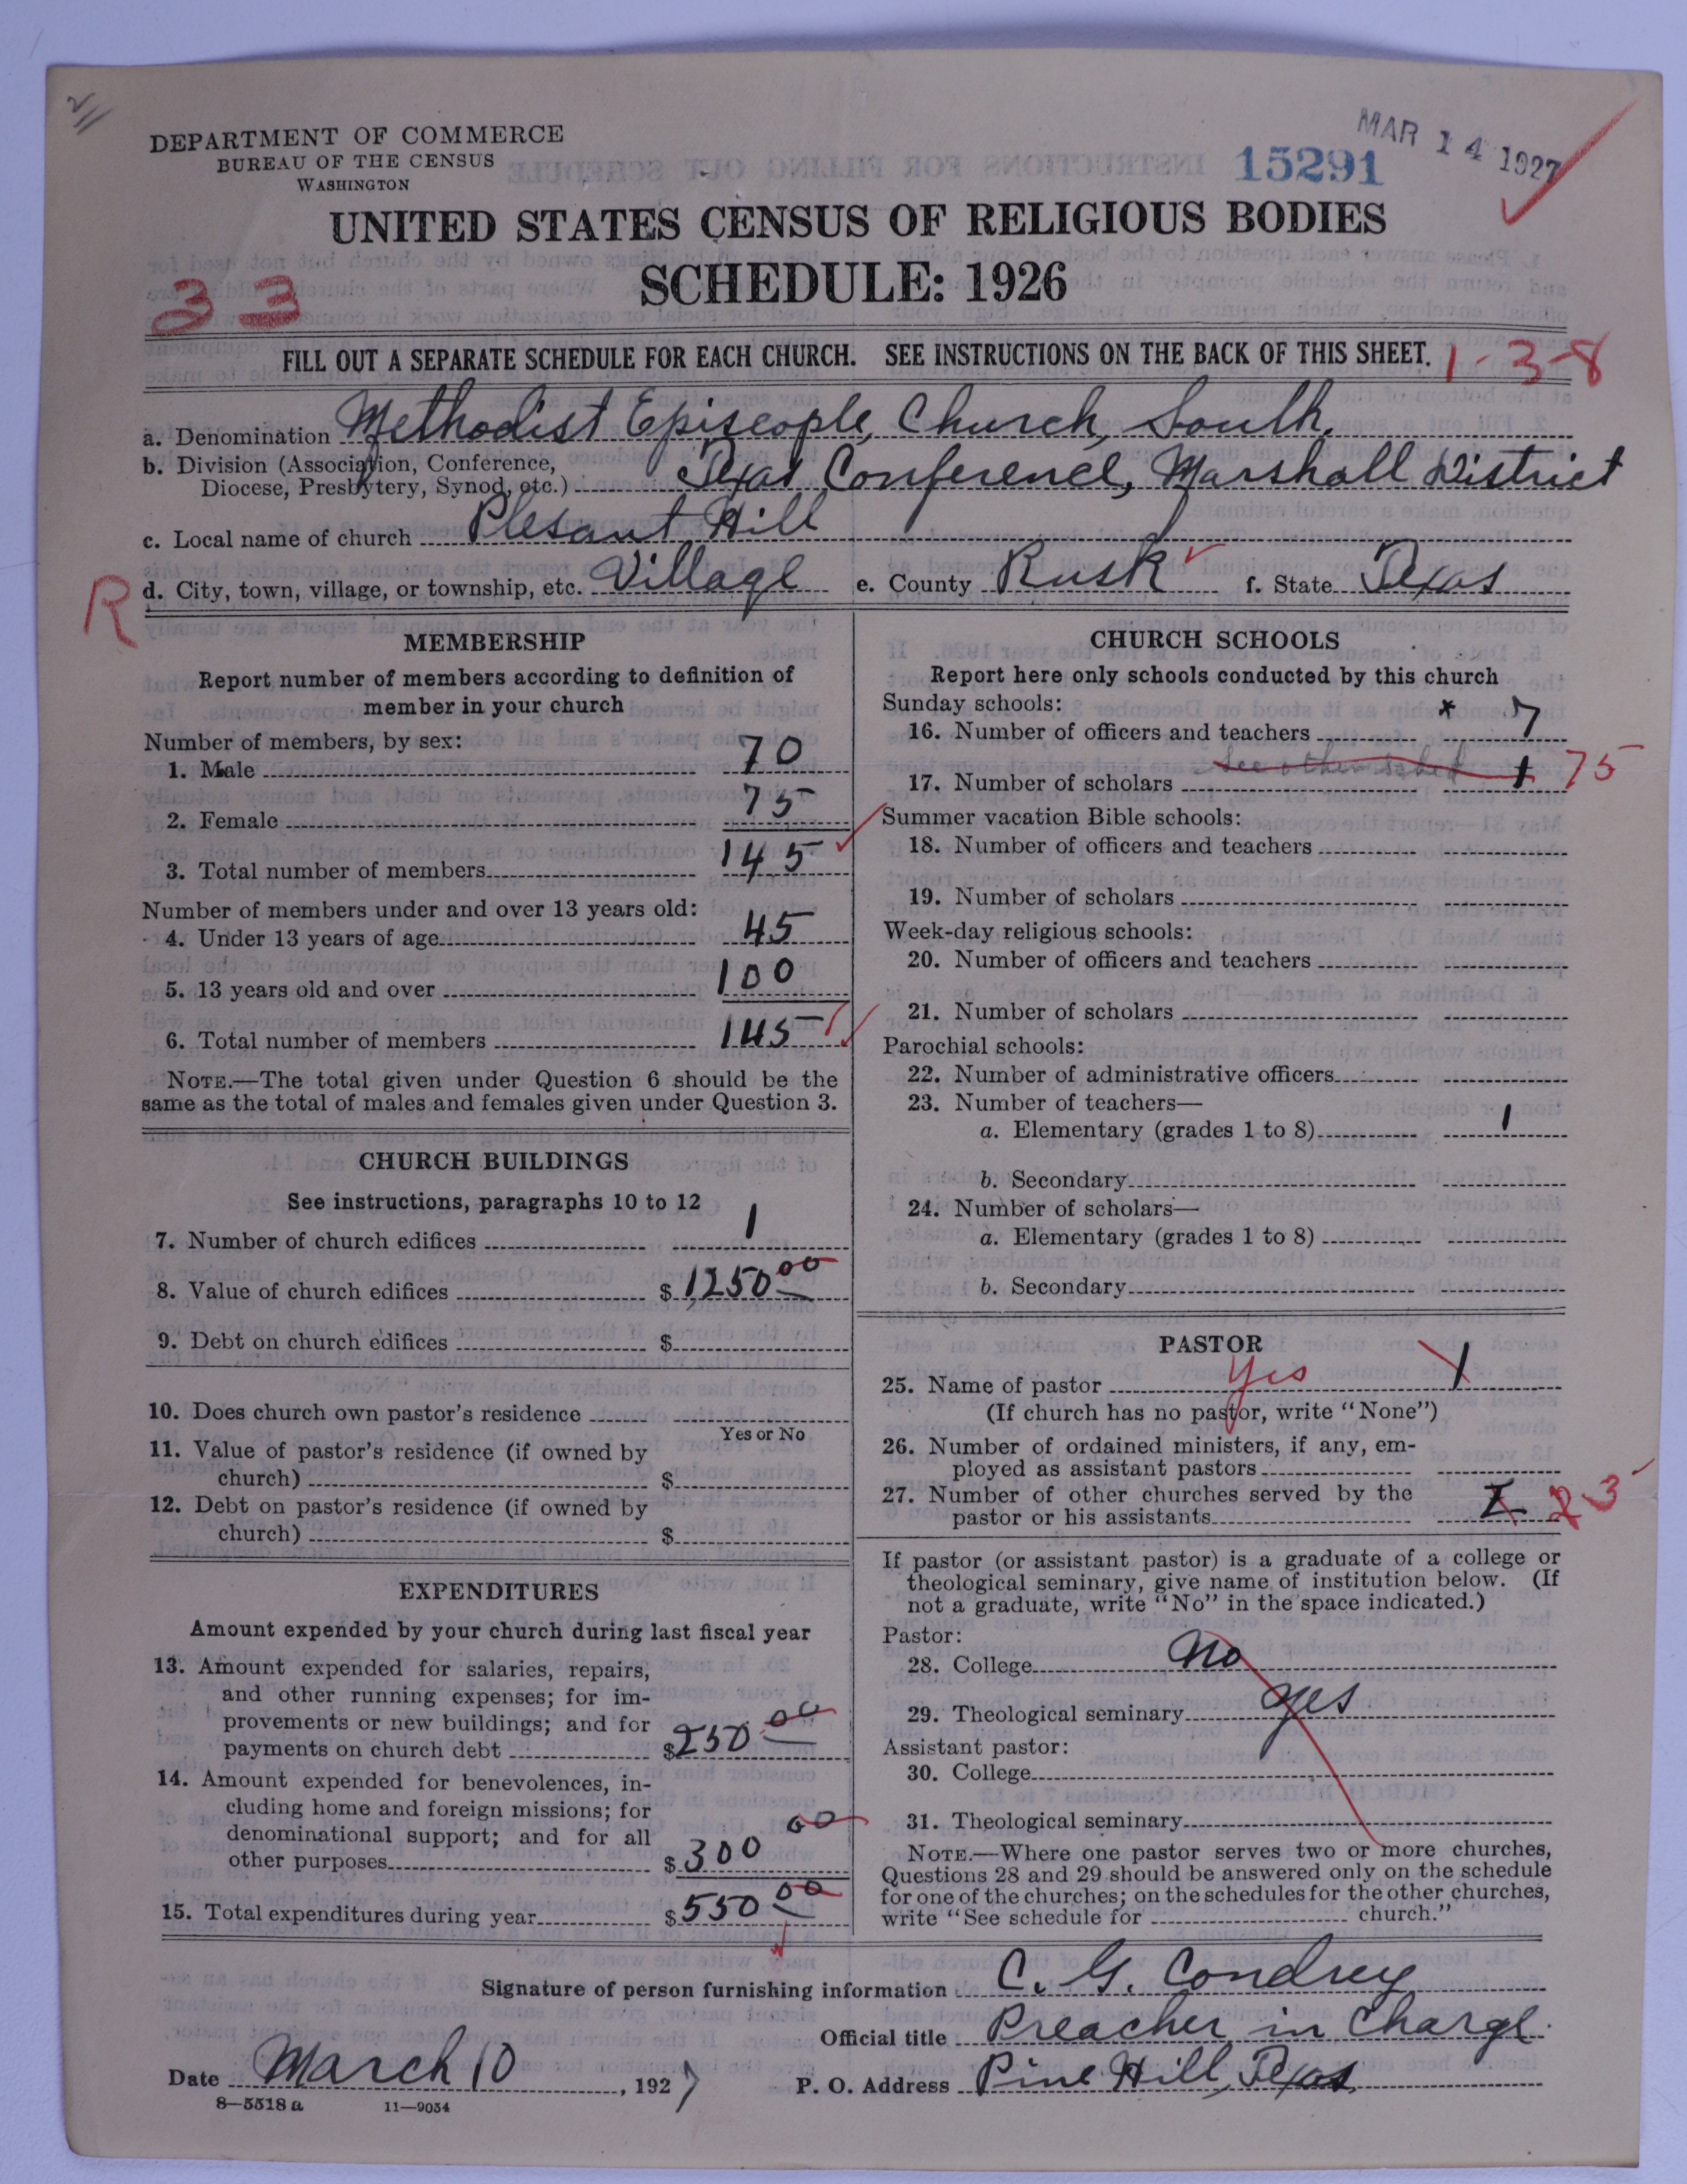 DEPARTMENT OF COMMERCE
BUREAU OF THE CENSUS
WASHINGTON
15291
MAR 14 1927
UNITED STATES CENSUS OF RELIGIOUS BODIES
SCHEDULE: 1926
33
FILL OUT A SEPARATE SCHEDULE FOR EACH CHURCH. SEE INSTRUCTIONS ON THE BACK OF THIS SHEET.
1-3-8
a. Denomination Methodist Episcople, Church, South.
b. Division (Association, Conference,
Diocese, Presbytery, Synod, etc.) Texas Conference, Marshall District
c. Local name of church Plesant Hill
R d. City, town, village, or township, etc. Village e. County Rusk f. State Texas
MEMBERSHIP
Report number of members according to definition of
member in your church
Number of members, by sex:
1. Male 70
2. Female 75
3. Total number of members 145
Number of members under and over 13 years old:
4. Under 13 years of age 45
5. 13 years old and over 100
6. Total number of members 145
NOTE.—The total given under Question 6 should be the
same as the total of males and females given under Question 3.
CHURCH BUILDINGS
See instructions, paragraphs 10 to 12
7. Number of church edifices 1
8. Value of church edifices $ 1250 00
9. Debt on church edifices $
10. Does church own pastor's residence
Yes or No
11. Value of pastor's residence (if owned by
church) $
12. Debt on pastor's residence (if owned by
church) $
EXPENDITURES
Amount expended by your church during last fiscal year
13. Amount expended for salaries, repairs,
and other running expenses; for im-
provements or new buildings; and for
payments on church debt $ 250 00
14. Amount expended for benevolences, in-
cluding home and foreign missions; for
denominational support; and for all
other purposes $ 300 00
15. Total expenditures during year $ 550 00
CHURCH SCHOOLS
Report here only schools conducted by this church
Sunday schools:
16. Number of officers and teachers x 7
17. Number of scholars See other sched 1 75
Summer vacation Bible schools:
18. Number of officers and teachers
19. Number of scholars
Week-day religious schools:
20. Number of officers and teachers
21. Number of scholars
Parochial schools:
22. Number of administrative officers
23. Number of teachers—
a. Elementary (grades 1 to 8) 1
b. Secondary
24. Number of scholars—
a. Elementary (grades 1 to 8)
b. Secondary
PASTOR
25. Name of pastor Yes 1
(If church has no pastor, write "None")
26. Number of ordained ministers, if any, em-
ployed as assistant pastors
27. Number of other churches served by the
pastor or his assistants 3
If pastor (or assistant pastor) is a graduate of a college or
theological seminary, give name of institution below. (If
not a graduate, write "No" in the space indicated.)
Pastor:
28. College No
29. Theological seminary yes
Assistant pastor:
30. College
31. Theological seminary
NOTE.—Where one pastor serves two or more churches,
Questions 28 and 29 should be answered only on the schedule
for one of the churches; on the schedules for the other churches,
write "See schedule for church."
Signature of person furnishing information C. G. Condrey
Official title Preacher in Charge.
Date March 10, 1927 P. O. Address Pine Hill, Texas
8—5518 a 11—9034